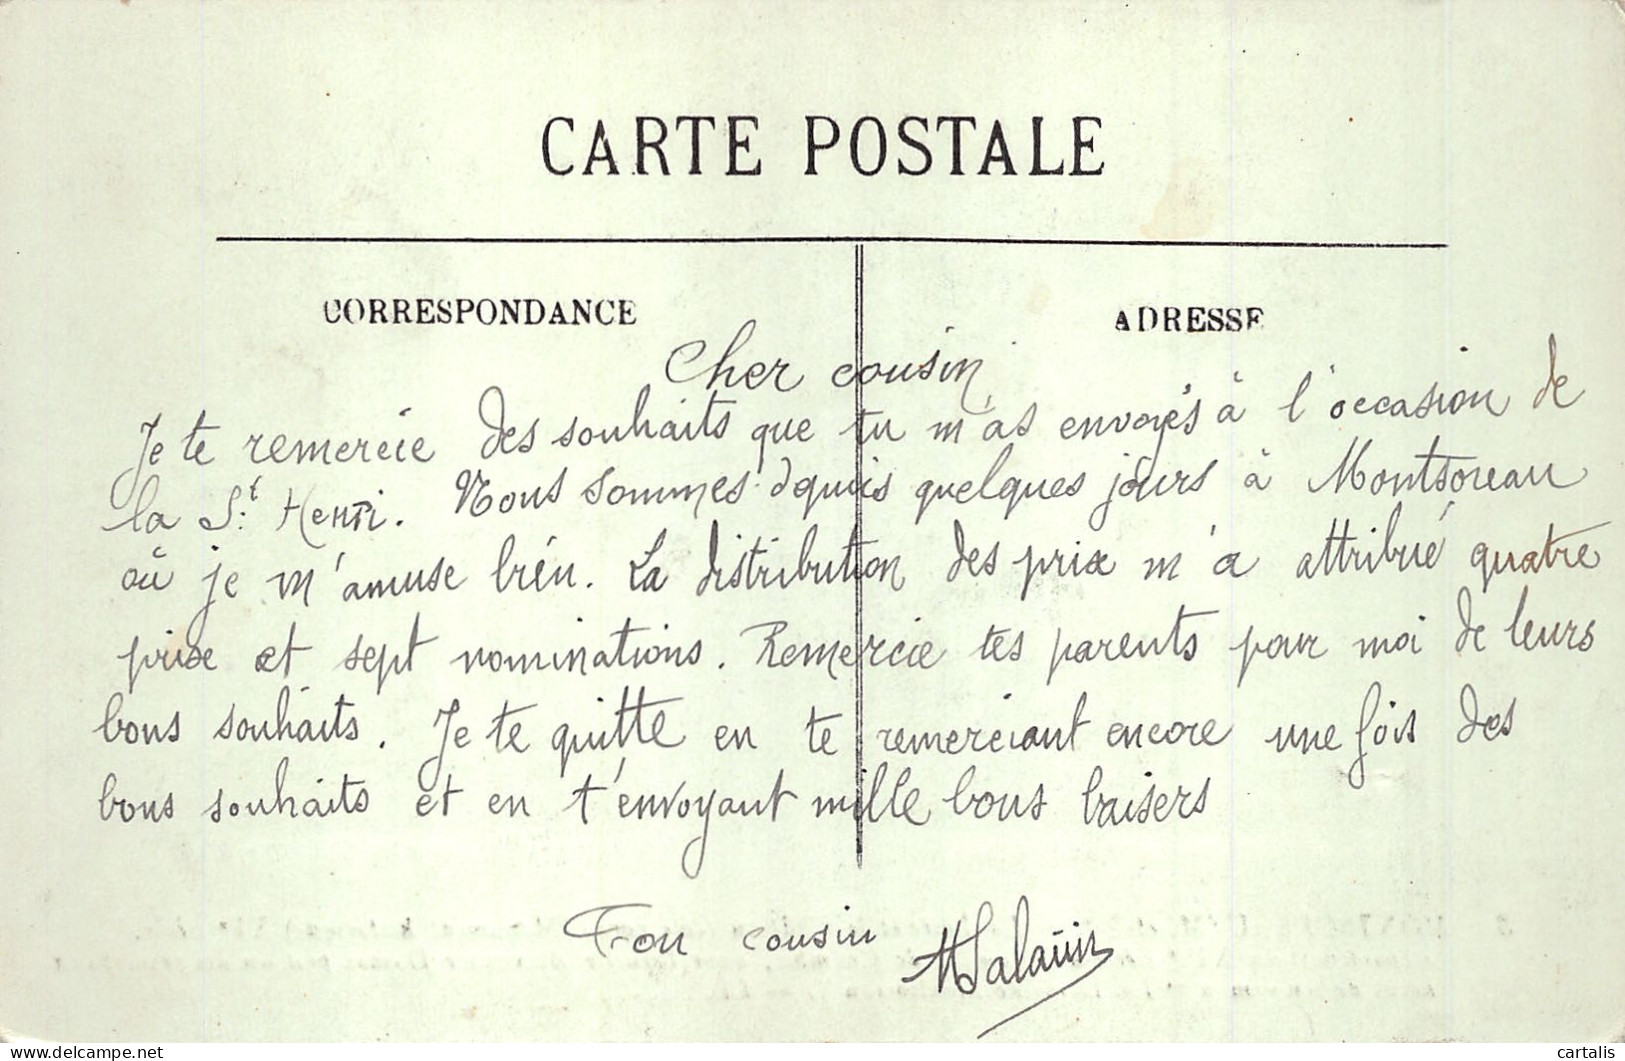 CARTE POSTALE
CORRESPONDANCE
ADRESSE
Cher cousin
Je te remercie des souhaits que tu m'as envoyés à l'occasion de
la St. Henri. Nous sommes depuis quelques jours à Montsoreau
où je m'amuse bien. La distribution des prix m'a attribué quatre
prix et sept nominations. Remercie tes parents pour moi de leurs
bons souhaits. Je te quitte en te remerciant encore une fois des
bons souhaits et en t'envoyant mille bons baisers
Ton cousin
HSalaün
cartalis